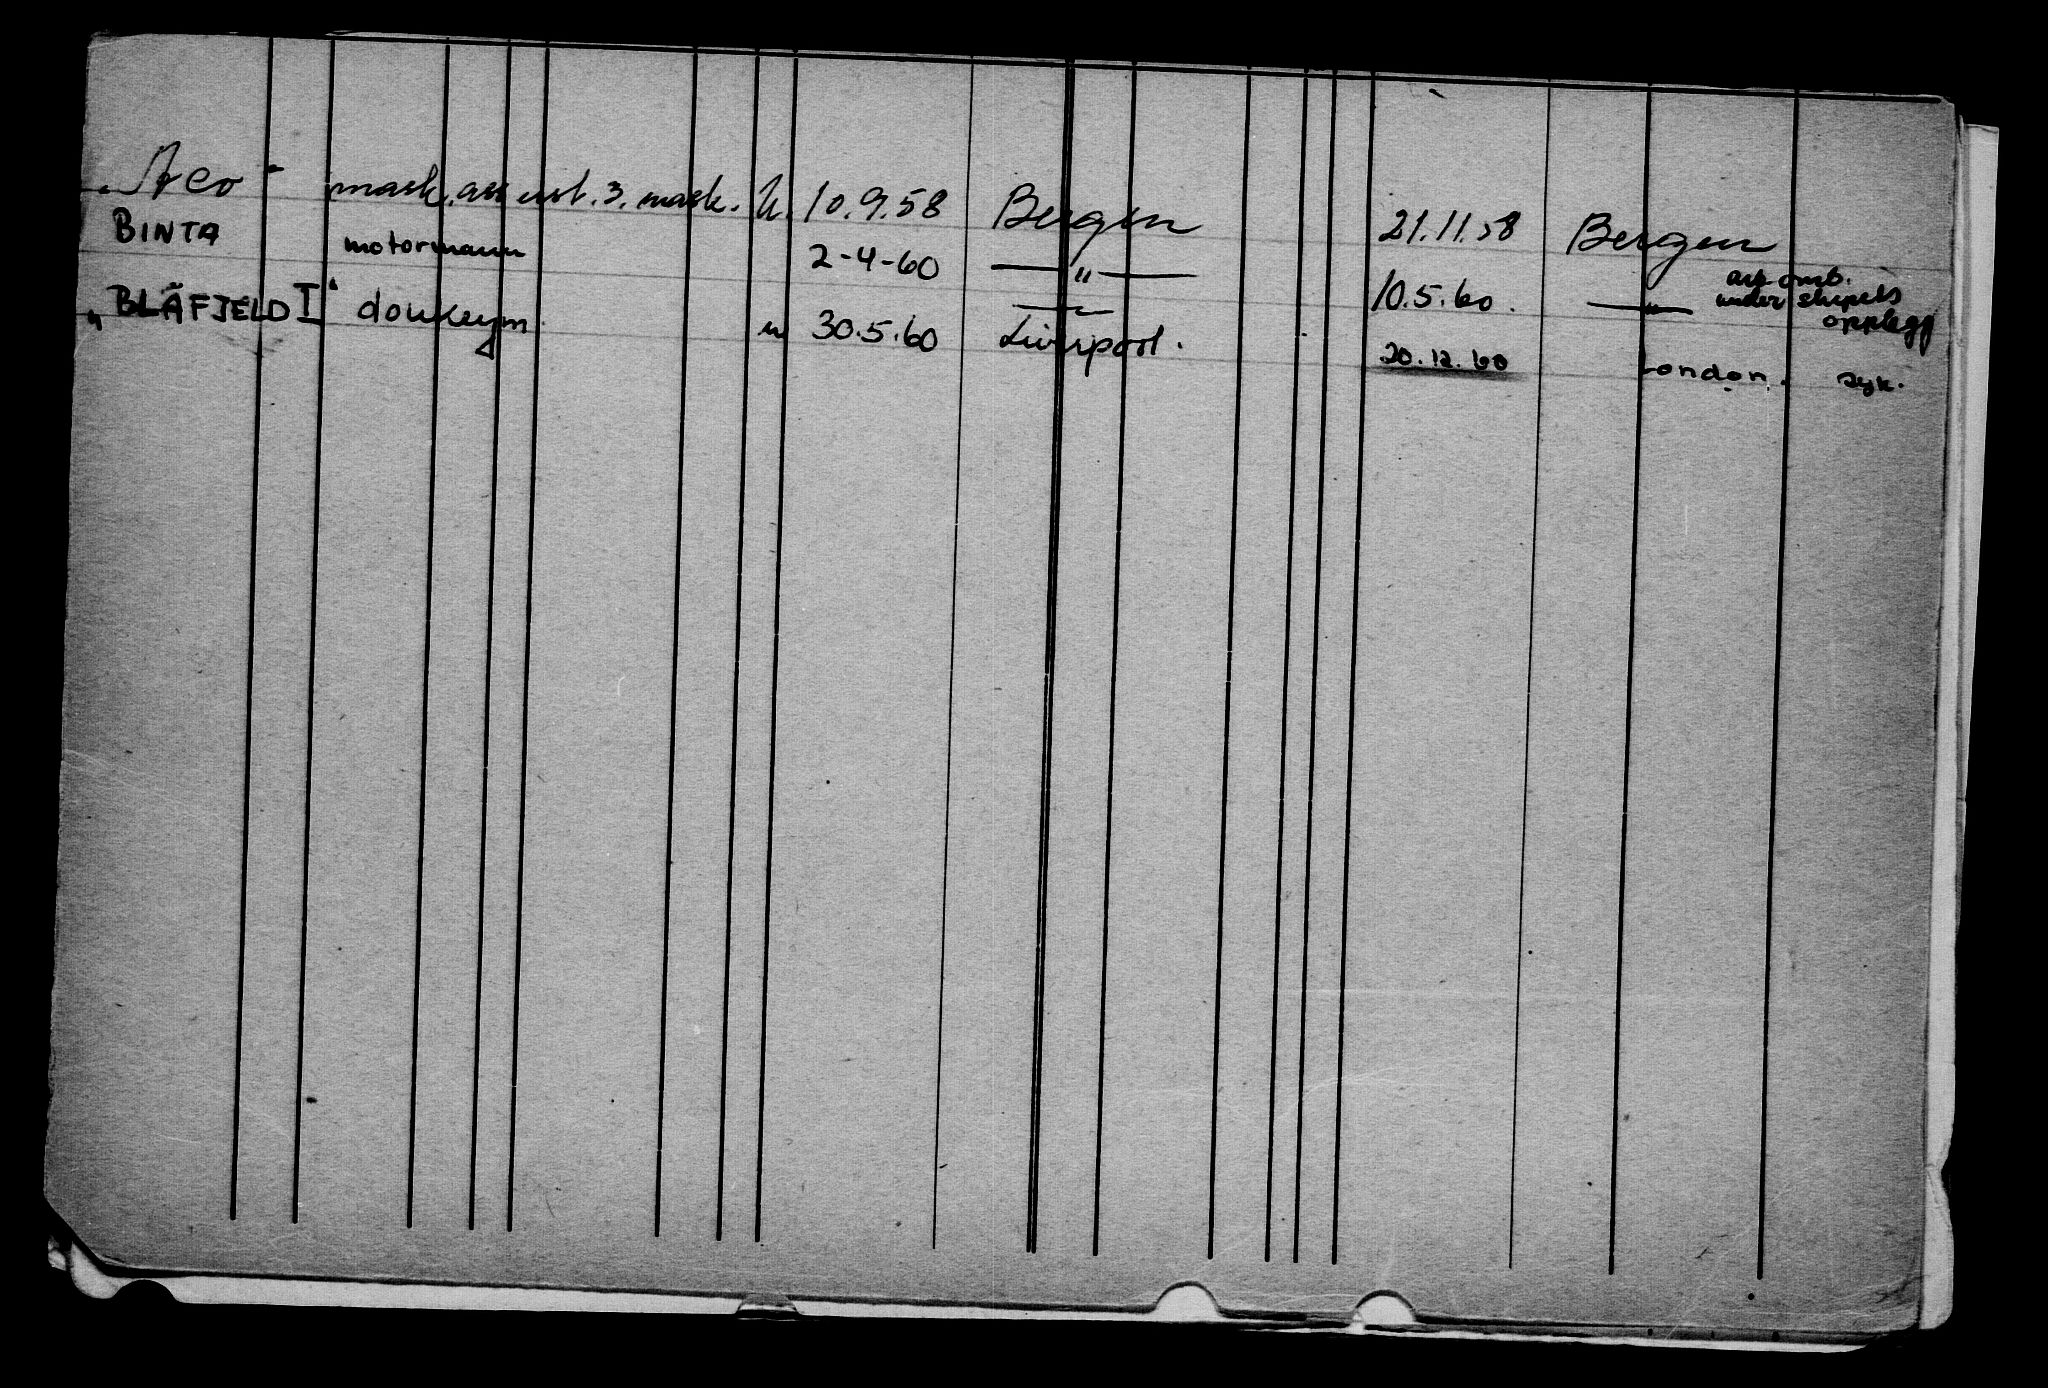 "Aco" mask. ass ust. 3. mask. u. 10.9.58 Bergen 21.11.58 Bergen
BINTA motormann 2-4-60 — " — 10.5.60. — " — arb omb. under skipets opplegg
"BLÅFJELD I" donkeym. u 30.5.60 Liverpool. 20.12.60 London. syk.